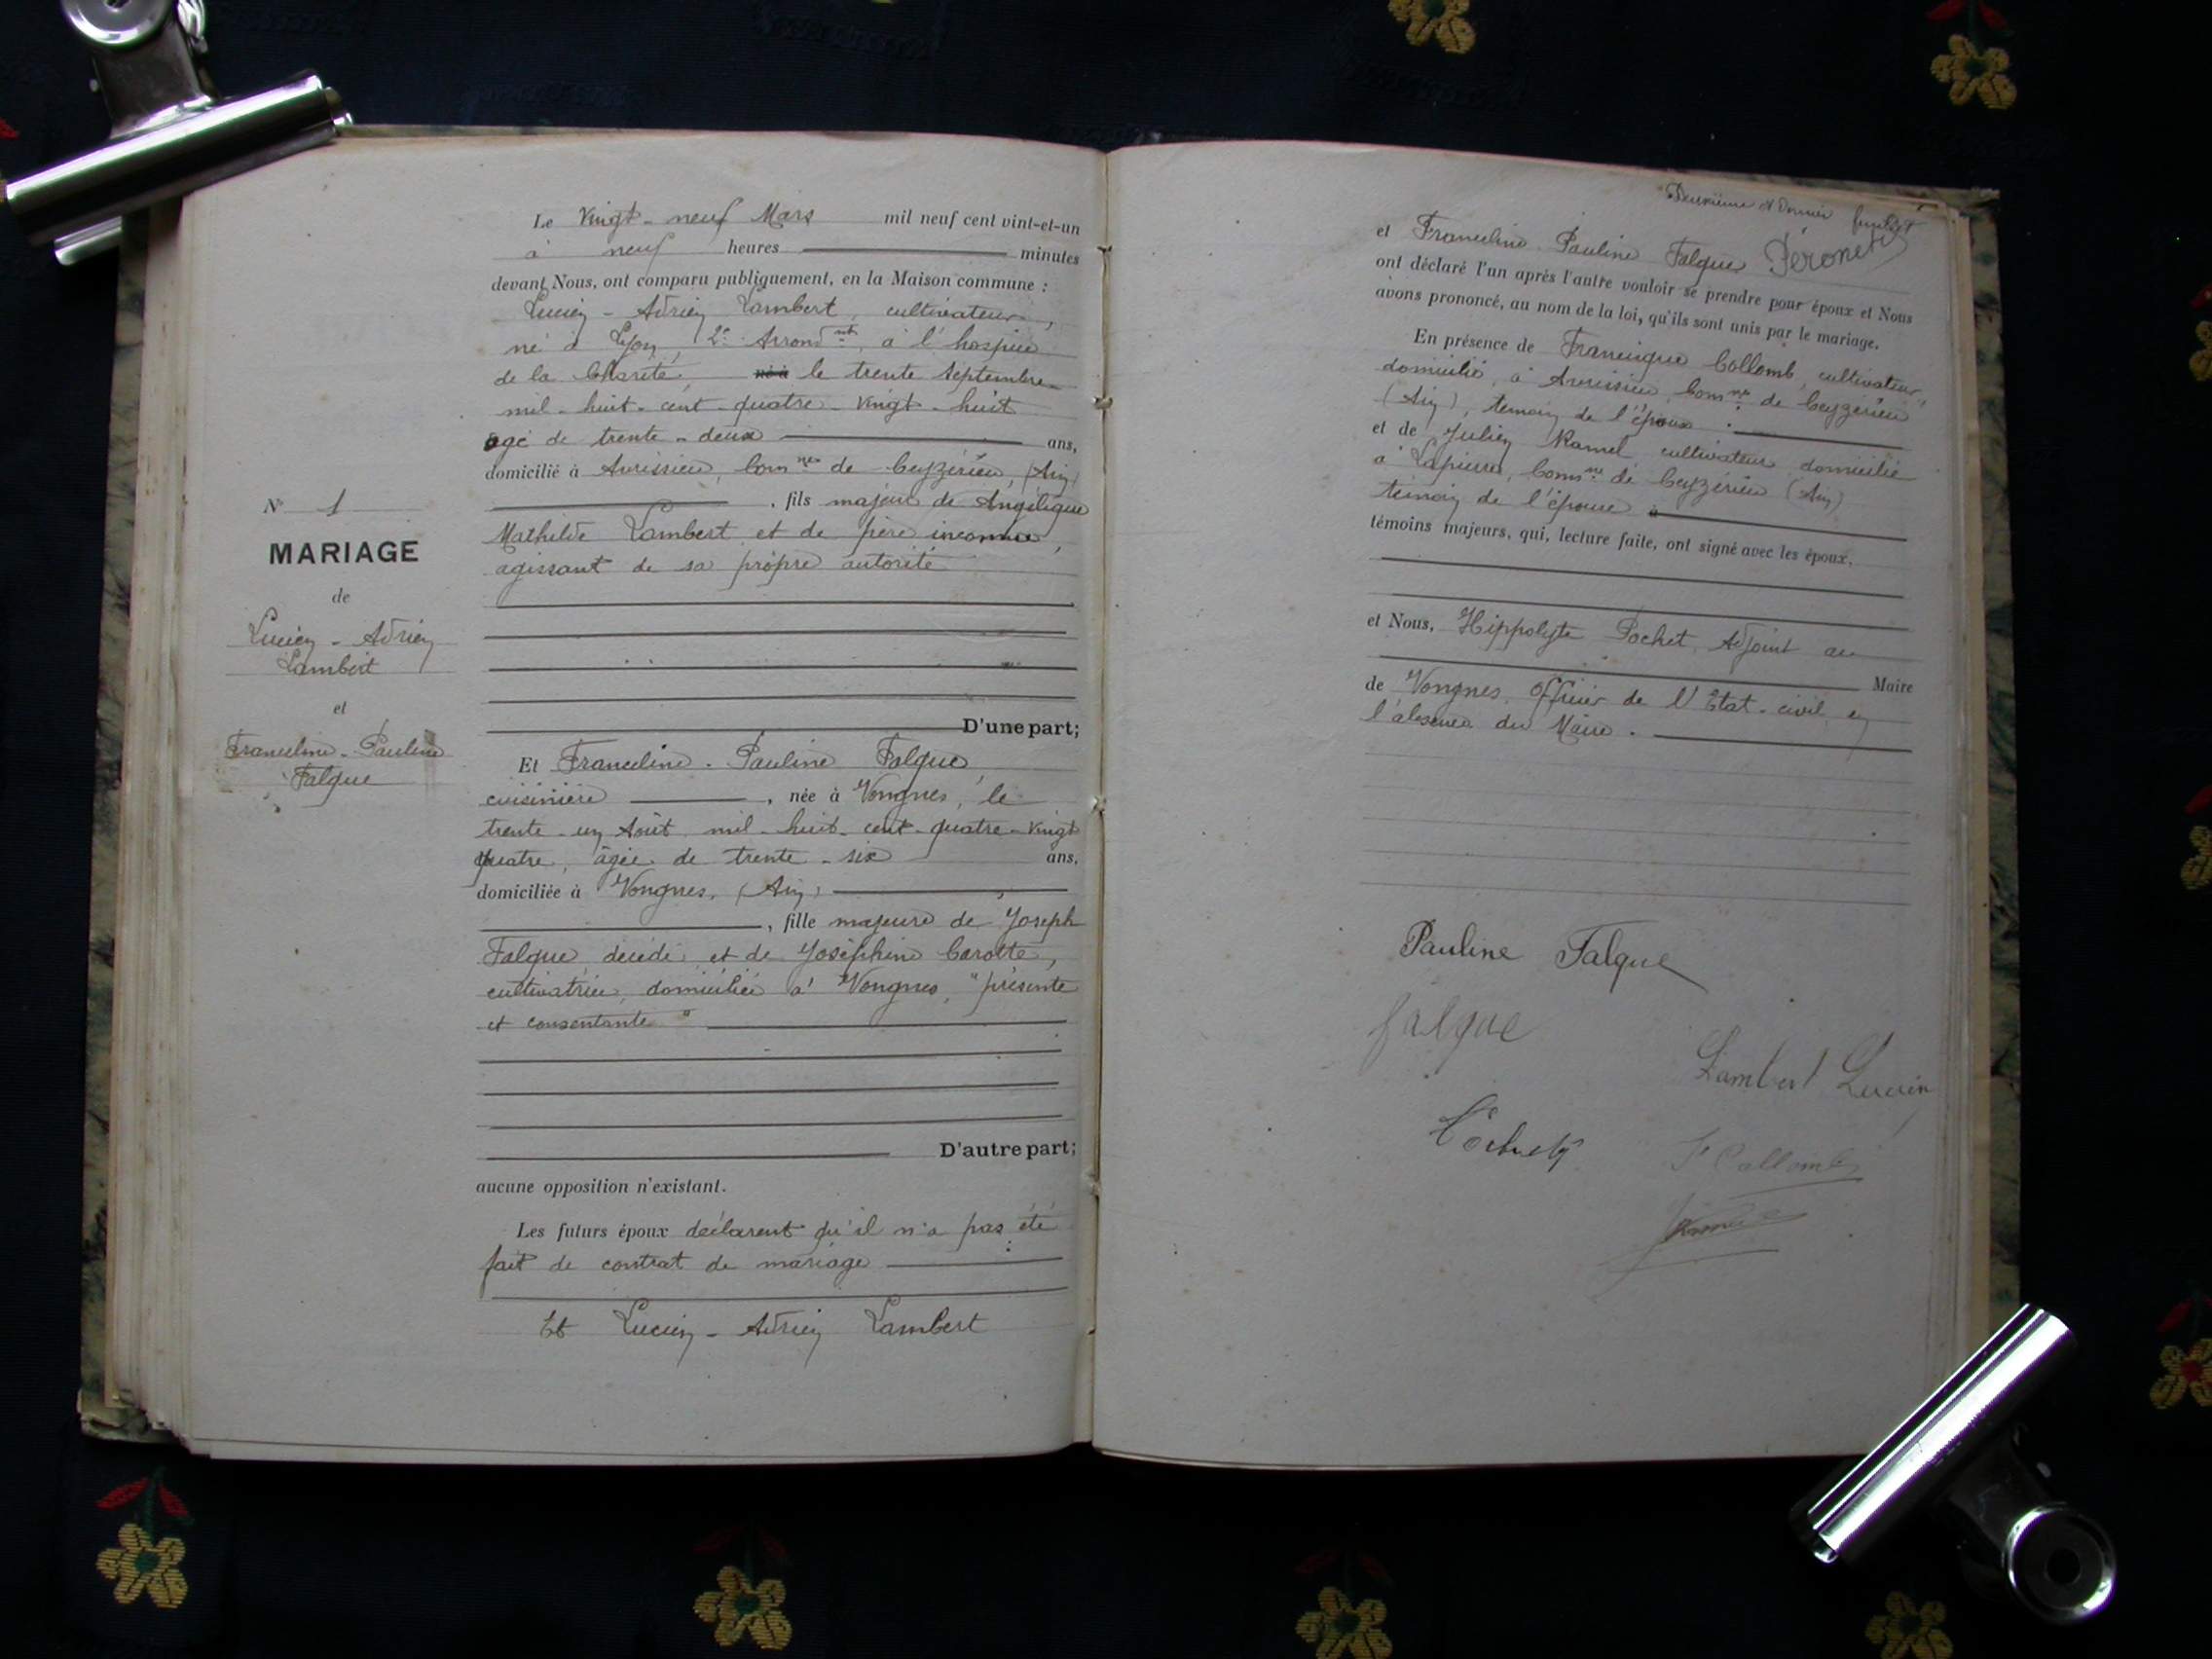 N° 1
MARIAGE
de
Lucien - Adrien
Lambert
et
Franceline - Pauline
Falque
Le Vingt - neuf Mars mil neuf cent vint-et-un
à neuf heures minutes
devant Nous, ont comparu publiquement, en la Maison commune :
Lucien - Adrien Lambert, cultivateur,
né à Lyon, 2e Arrondmt, à l'hospice
de la Charité, né à le trente Septembre
mil - huit - cent - quatre - Vingt - huit
agé de trente - deux ans,
domicilié à Avrissieu, Comne de Ceyzérieu, (Ain)
, fils majeur de Angélique
Mathilde Lambert et de père inconnu,
agissant de sa propre autorité
D'une part;
Et Franceline - Pauline Falque,
cuisinière , née à Vongnes, le
trente - un Août mil - huit - cent - quatre - Vingt
quatre, âgée de trente - six ans,
domiciliée à Vongnes, (Ain) ,
, fille majeure de Joseph
Falque décédé et de Joséphine Carotte,
cultivatrice, domiciliée à Vongnes, "présente
et consentante"
D'autre part;
aucune opposition n'existant.
Les futurs époux déclarent qu'il n'a pas été
fait de contrat de mariage
Et Lucien - Adrien Lambert
Deuxième et dernier feuillet
et Franceline Pauline Falque Péronet
ont déclaré l'un après l'autre vouloir se prendre pour époux et Nous
avons prononcé, au nom de la loi, qu'ils sont unis par le mariage.
En présence de Francisque Collomb, cultivateur,
domicilié à Avrissieu Comne de Ceyzérieu
(Ain), témoin de l'époux.
et de Julien Ramel cultivateur domicilié
à Lapierre, Comne de Ceyzérieu (Ain)
témoin de l'épouse à
témoins majeurs, qui, lecture faite, ont signé avec les époux,
et Nous, Hippolyte Pochet, Adjoint au
Maire
de Vongnes, Officier de l'Etat-civil en
l'absence du Maire.
Pauline Falque
falque
Lambert Lucien
Pochet
F Collomb